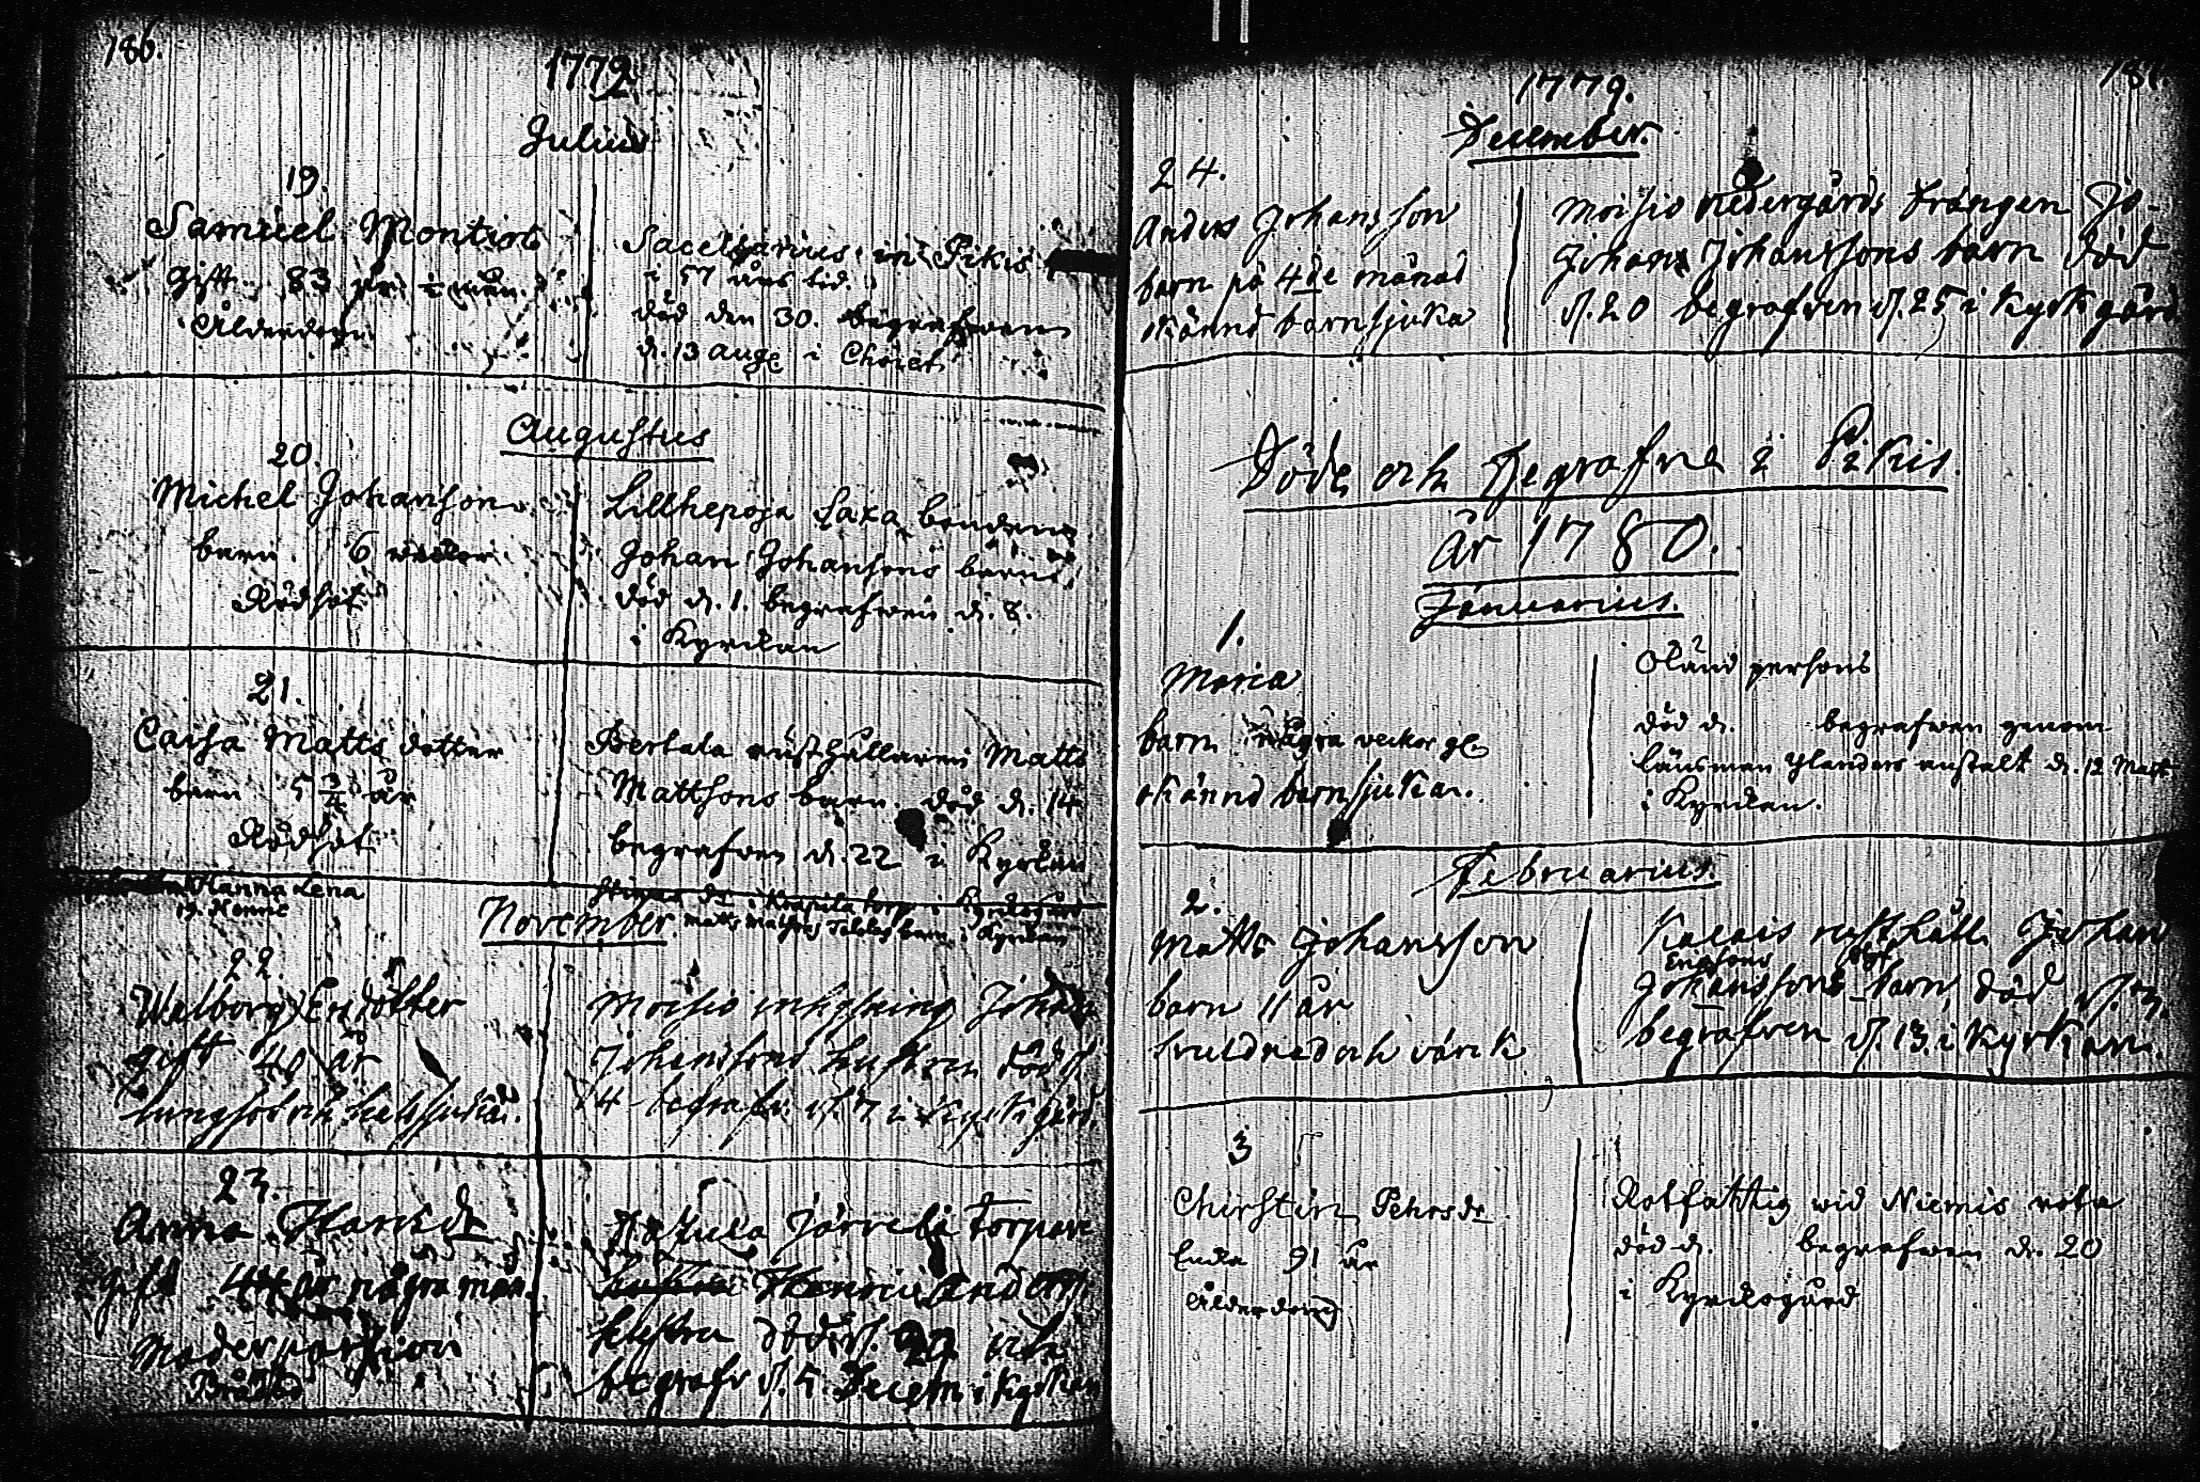 186.
1779
Julius
19.
Samuel Montin
Gift 83 år ½ mån.
Ålderdom
Sacellanus in Pikis
i 57 års tid.
död den 30. begrafwen
d. 13 Aug. i Choret
Augustus
20.
Michel Johansson
barn 6 weckor
Rödsot
Lillhepoja Laxa bondens
Johan Johansons barn
död d. 1. begrafwen d. 8.
i Kyrckan
21.
Caisa Matts dotter
barn 5 3/4 år
Rödsot
Bertala rusthållaren Matts
Mattsons barn. död d. 14
begrafwen d. 22 i Kyrckan
Hanna Lena
torp i Kyrckogård
November.
Matts barn i Kyrckan
22.
Walborg Ersdotter
gift 40 år
lungsot och
Moisio Johan
Johanssons hustru död d.
4 begrafv. d. 7 i Kyrkogård.
23.
Anna Henricsdr
gift 44 år några mån.
Moderpassion
Bråddöd
Järvelä Torpare
hustru Henric Anders.
hustru död d. 29 och
begrafv d. 5. Decem i Kyrkan
187.
1779.
December.
24.
Anders Johansson
barn på 4de månad
okänd barnsjuka
Moisio Nedergårds Drängen Jo-
Johan Johanssons barn död
d. 20 begrafven d. 25 i Kyrkgård
Döde och Begrafne i Pikis.
År 1780.
Januarius.
1.
Maria
barn några veckor gl.
okännd barnsjuka.
Okänd persons
död d. begrafwen genom
länsman Ylanders anstalt d. 12 Mart.
i Kyrckan.
Februarius.
2.
Matts Johansson
barn 11 år
svuldnad och värck
rusthåll. Johan
Ericssons
Johanssons barn, död d. 3.
begrafven d. 13. i Kyrkan.
3
Christin Pehrsdr
Enka 91 år
Ålderdom
Rotfattig wid Niemis rota
död d. begrafwen d. 20
i Kyrckogård